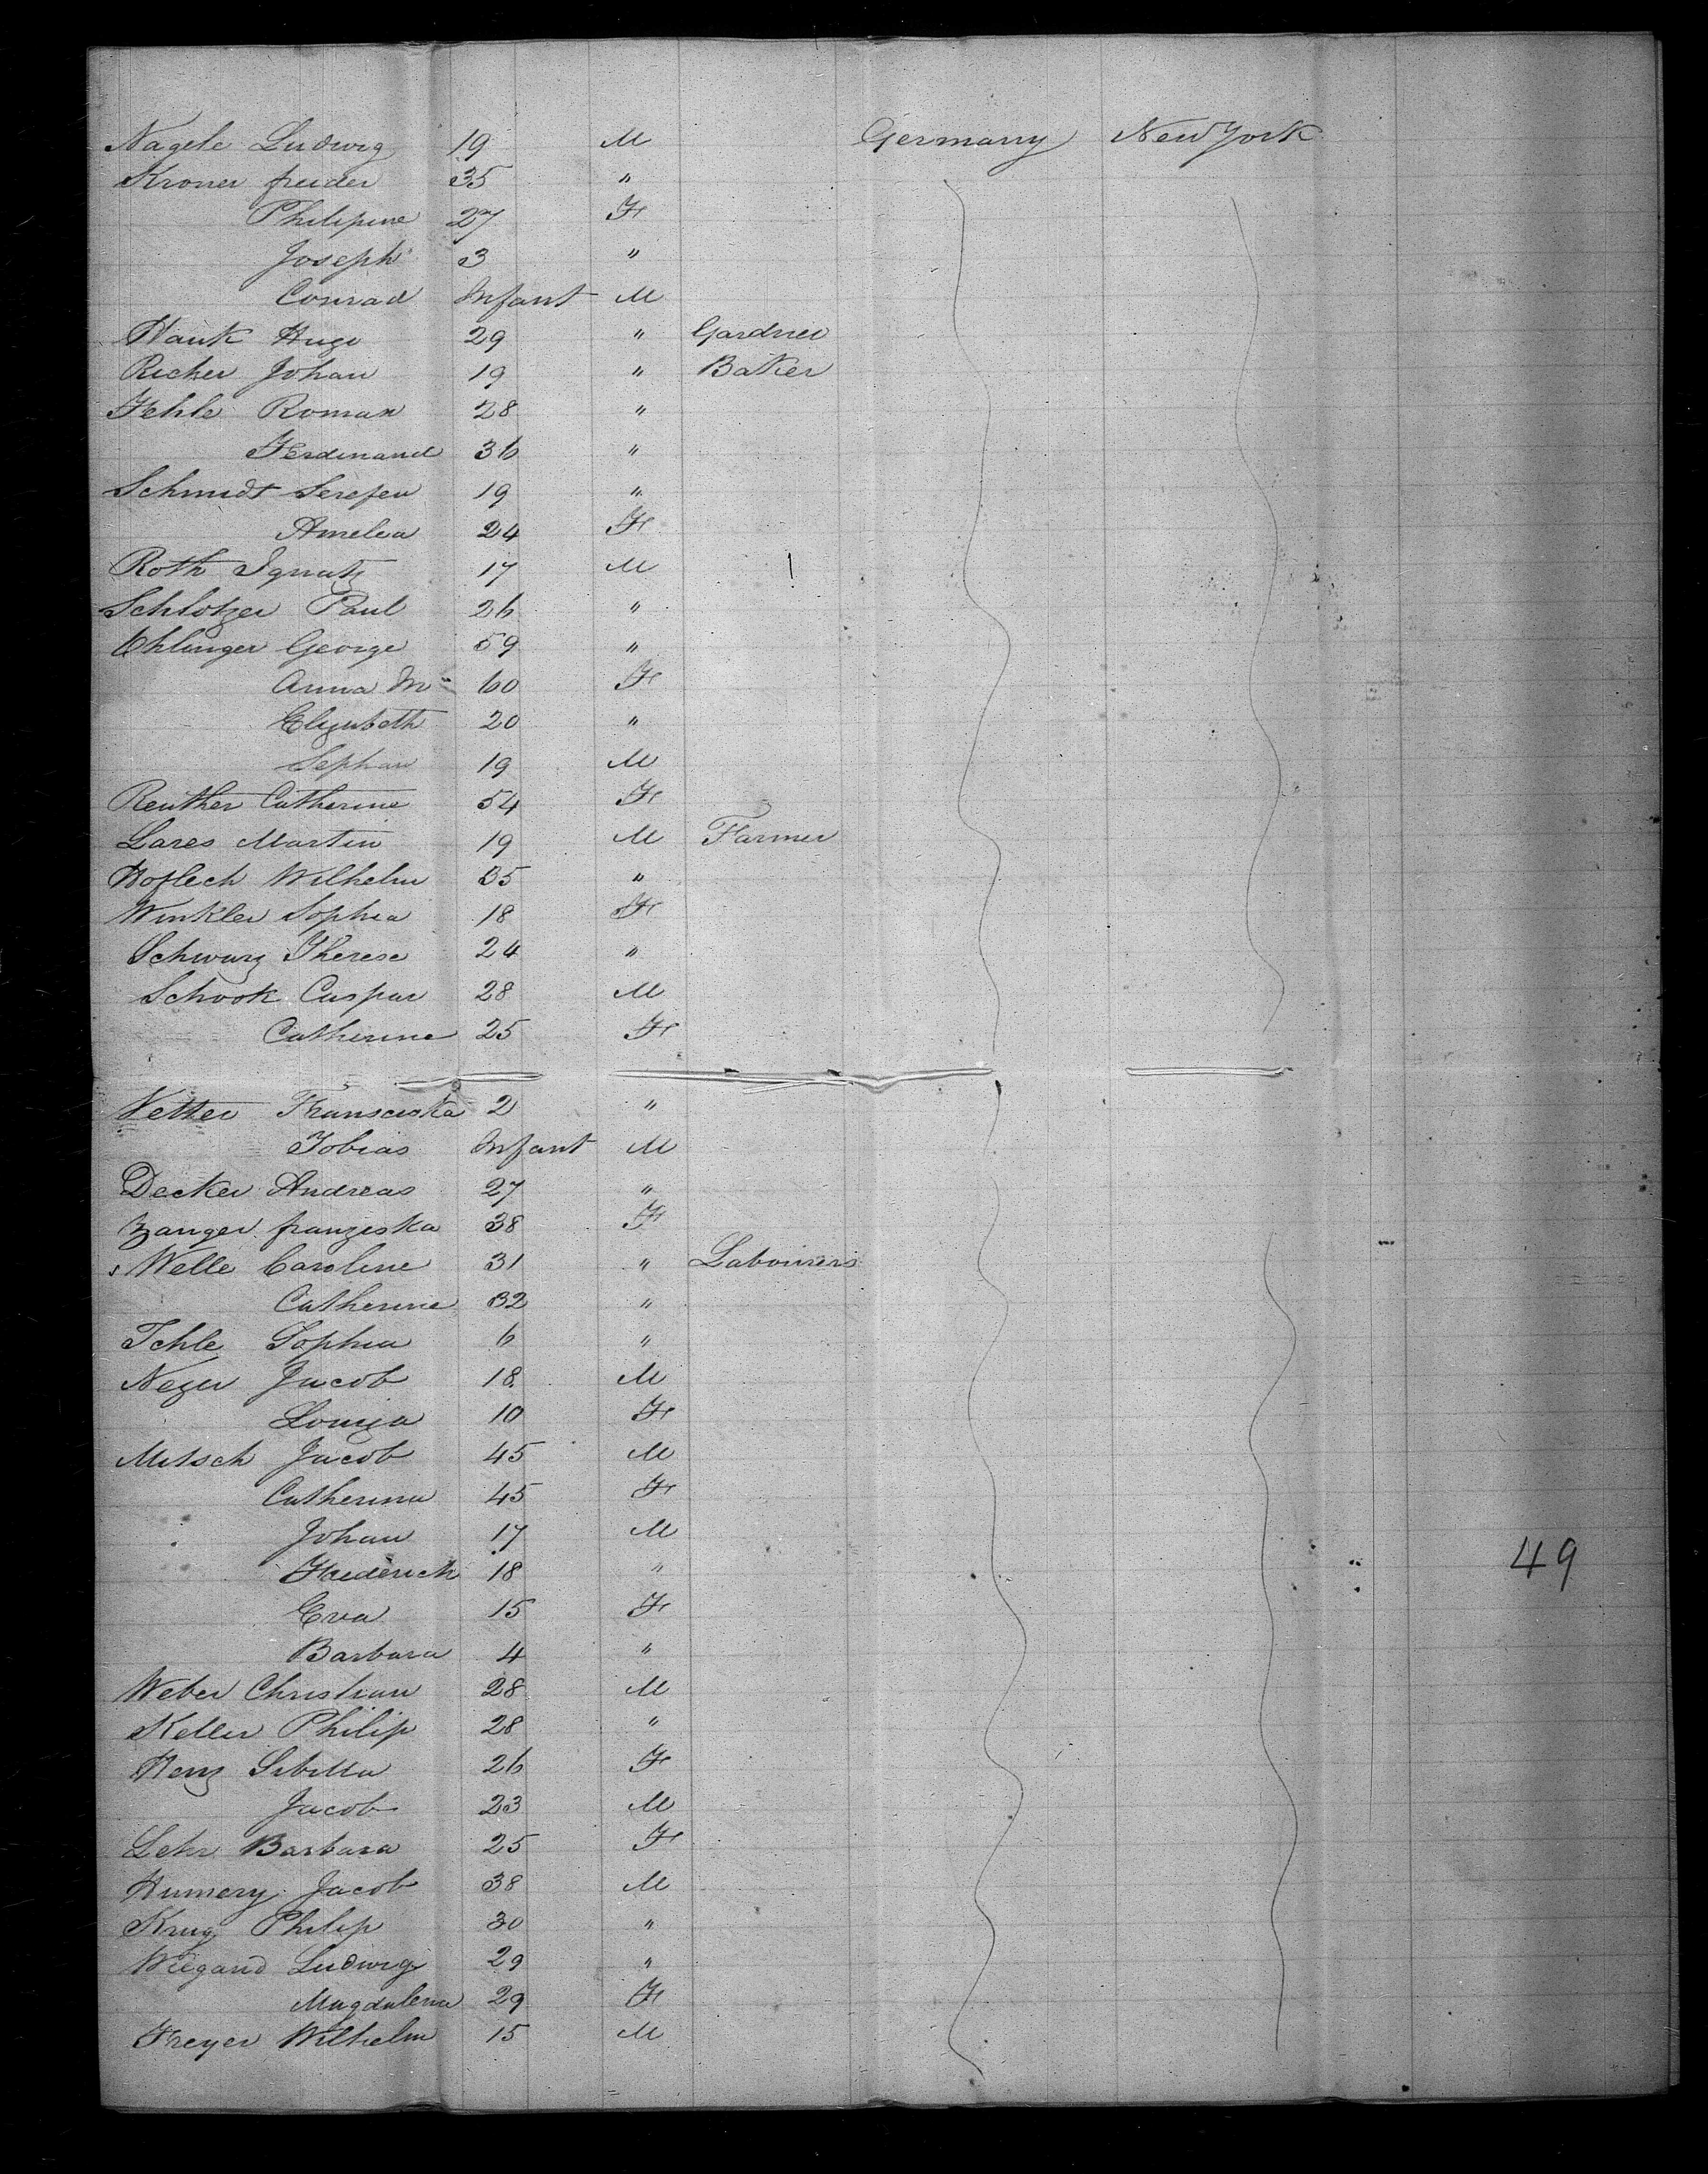 Nagele Ludwig 19 M Germany New York
Kroner frieder 35 "
Philipine 27 F
Joseph 3 "
Conrad Infant M
Hauk Hugo 29 " Gardner
Richer Johan 19 " Baker
Fehle Roman 28 "
Ferdinand 36 "
Schmidt Serefen 19 "
Amelia 24 F
Roth Ignatz 17 M
Schlotzer Paul 26 "
Ehlinger George 59 "
Anna M 60 F
Elizabeth 20 "
Sephan 19 M
Reuther Catherine 54 F
Lares Martin 19 M Farmer
Hoflech Wilhelm 35 "
Winkler Sophia 18 F
Schwarz Therese 24 "
Schook Caspar 28 M
Catherine 25 F
Vetter Fransciska 2 "
Tobias Infant M
Decker Andreas 27 "
Zanger franziska 38 F
Welle Caroline 31 " Labourers
Catherine 32 "
Fehle Sophia 6 "
Nezer Jacob 18 M
Louiza 10 F
Mitsch Jacob 45 M
Catherina 45 F
Johan 17 M
Frederich 18 "
49
Eva 15 F
Barbara 4 "
Weber Christian 28 M
Keller Philip 28 "
Henz Sibilla 26 F
Jacob 23 M
Lehr Barbara 25 F
Humery Jacob 38 M
Krug Philip 30 "
Wiegand Ludwig 29 "
Magdalena 29 F
Freyer Wilhelm 15 M